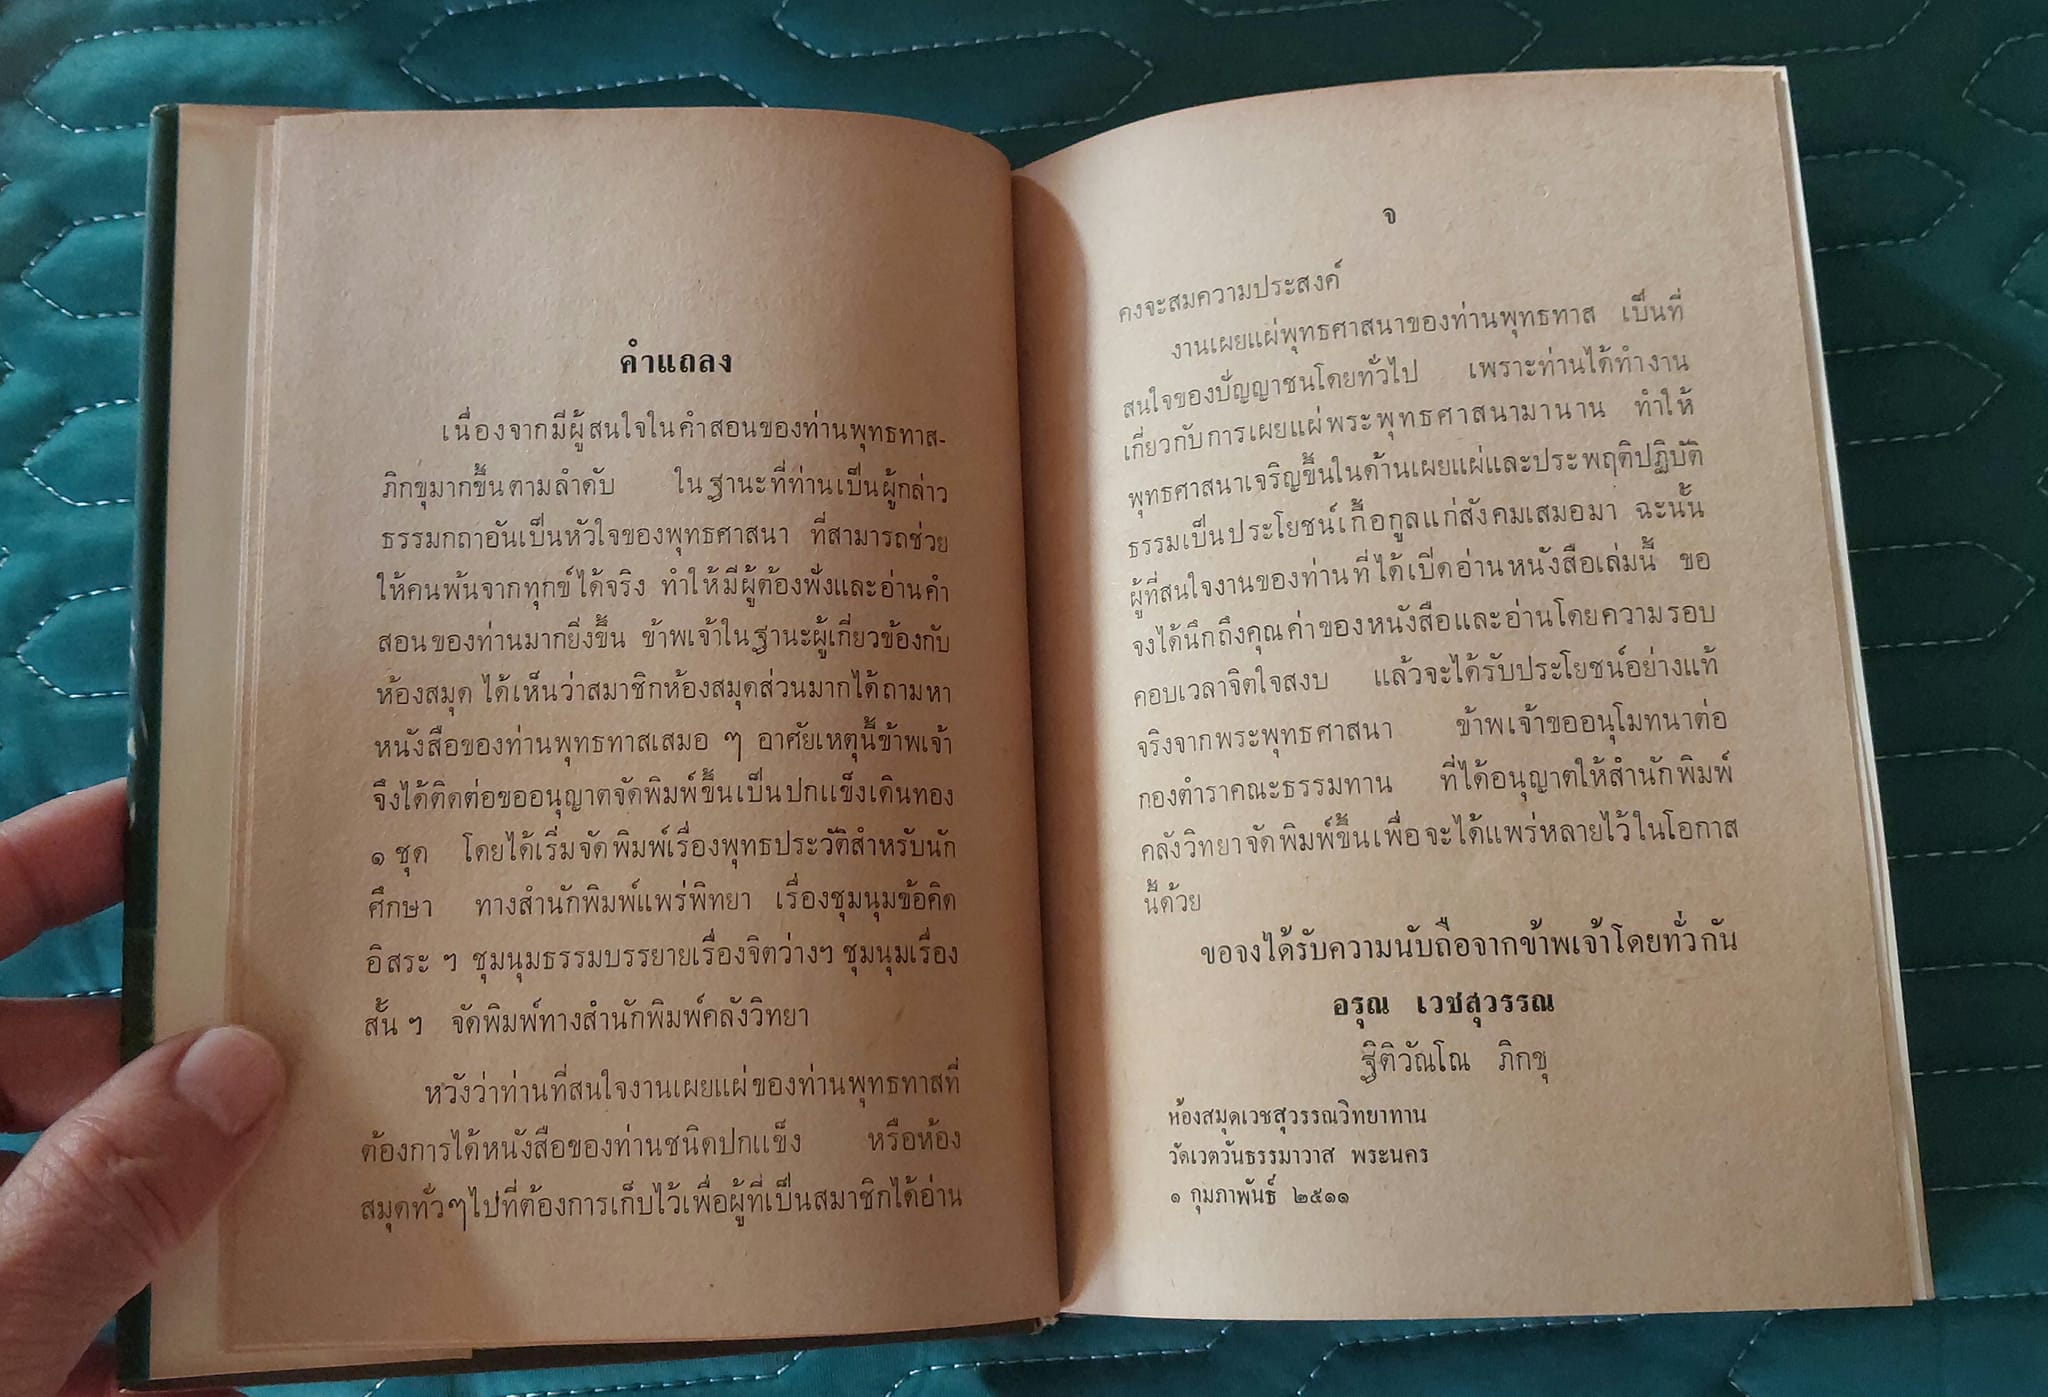 คำแถลง
เนื่องจากมีผู้สนใจในคำสอนของท่านพุทธทาส-
ภิกขุมากขึ้นตามลำดับ ในฐานะที่ท่านเป็นผู้กล่าว
ธรรมกถาอันเป็นหัวใจของพุทธศาสนา ที่สามารถช่วย
ให้คนพ้นจากทุกข์ได้จริง ทำให้มีผู้ต้องฟังและอ่านคำ
สอนของท่านมากยิ่งขึ้น ข้าพเจ้าในฐานะผู้เกี่ยวข้องกับ
ห้องสมุด ได้เห็นว่าสมาชิกห้องสมุดส่วนมากได้ถามหา
หนังสือของท่านพุทธทาสเสมอ ๆ อาศัยเหตุนี้ข้าพเจ้า
จึงได้ติดต่อขออนุญาตจัดพิมพ์ขึ้นเป็นปกแข็งเดินทอง
๑ ชุด โดยได้เริ่มจัดพิมพ์เรื่องพุทธประวัติสำหรับนัก
ศึกษา ทางสำนักพิมพ์แพร่พิทยา เรื่องชุมนุมข้อคิด
อิสระ ฯ ชุมนุมธรรมบรรยายเรื่องจิตว่างฯ ชุมนุมเรื่อง
สั้น ฯ จัดพิมพ์ทางสำนักพิมพ์คลังวิทยา
หวังว่าท่านที่สนใจงานเผยแผ่ของท่านพุทธทาสที่
ต้องการได้หนังสือของท่านชนิดปกแข็ง หรือห้อง
สมุดทั่วๆไปที่ต้องการเก็บไว้เพื่อผู้ที่เป็นสมาชิกได้อ่าน
จ
คงจะสมความประสงค์
งานเผยแผ่พุทธศาสนาของท่านพุทธทาส เป็นที่
สนใจของปัญญาชนโดยทั่วไป เพราะท่านได้ทำงาน
เกี่ยวกับการเผยแผ่พระพุทธศาสนามานาน ทำให้
พุทธศาสนาเจริญขึ้นในด้านเผยแผ่และประพฤติปฏิบัติ
ธรรมเป็นประโยชน์เกื้อกูลแก่สังคมเสมอมา ฉะนั้น
ผู้ที่สนใจงานของท่านที่ได้เปิดอ่านหนังสือเล่มนี้ ขอ
จงได้นึกถึงคุณค่าของหนังสือและอ่านโดยความรอบ
คอบเวลาจิตใจสงบ แล้วจะได้รับประโยชน์อย่างแท้
จริงจากพระพุทธศาสนา ข้าพเจ้าขออนุโมทนาต่อ
กองตำราคณะธรรมทาน ที่ได้อนุญาตให้สำนักพิมพ์
คลังวิทยาจัดพิมพ์ขึ้นเพื่อจะได้แพร่หลายไว้ในโอกาส
นี้ด้วย
ขอจงได้รับความนับถือจากข้าพเจ้าโดยทั่วกัน
อรุณ เวชสุวรรณ
ฐิติวัณโณ ภิกขุ
ห้องสมุดเวชสุวรรณวิทยาทาน
วัดเวตวันธรรมาวาส พระนคร
๑ กุมภาพันธ์ ๒๕๑๑